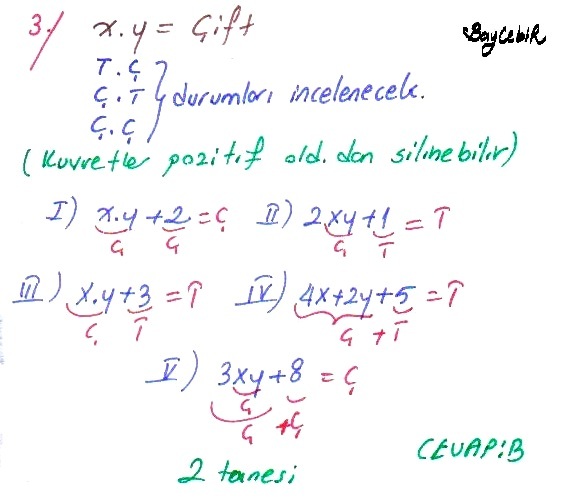 3.) x.y = Çift
BayCebir
T.Ç
Ç.T } durumları incelenecek.
Ç.Ç
(Kuvvetler pozitif old. dan silinebilir)
I) x.y+2=Ç II) 2xy+1=T
Ç Ç Ç T
III) x.y+3=T IV) 4x+2y+5=T
Ç T Ç+T
V) 3xy+8=Ç
Ç
Ç+Ç
CEVAP:B
2 tanesi